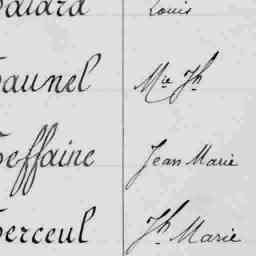 Louis
aunel Mie Jh
effaine Jean Marie
erceul Jh Marie